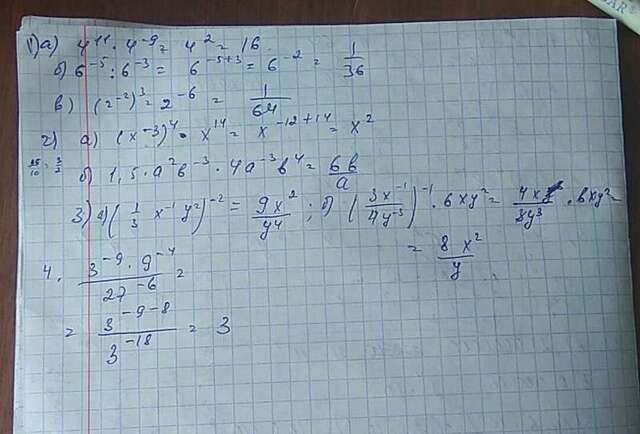 1) а) 4¹¹ · 4⁻⁹ = 4² = 16
б) 6⁻⁵ : 6⁻³ = 6⁻⁵⁺³ = 6⁻² = 1/36
в) (2⁻²)³ = 2⁻⁶ = 1/64
2) а) (x⁻³)⁴ · x¹⁴ = x⁻¹²⁺¹⁴ = x²
15/10 = 3/2
б) 1,5 · a²b⁻³ · 4a⁻³b⁴ = 6b/a
3) а) (1/3 x⁻¹ y²)⁻² = 9x²/y⁴ ; б) (3x⁻¹/4y⁻³)⁻¹ · 6xy² = 4x/3y³ · 6xy² =
= 8x²/y
4. 3⁻⁹ · 9⁻⁴/27⁻⁶ =
= 3⁻⁹⁻⁸/3⁻¹⁸ = 3